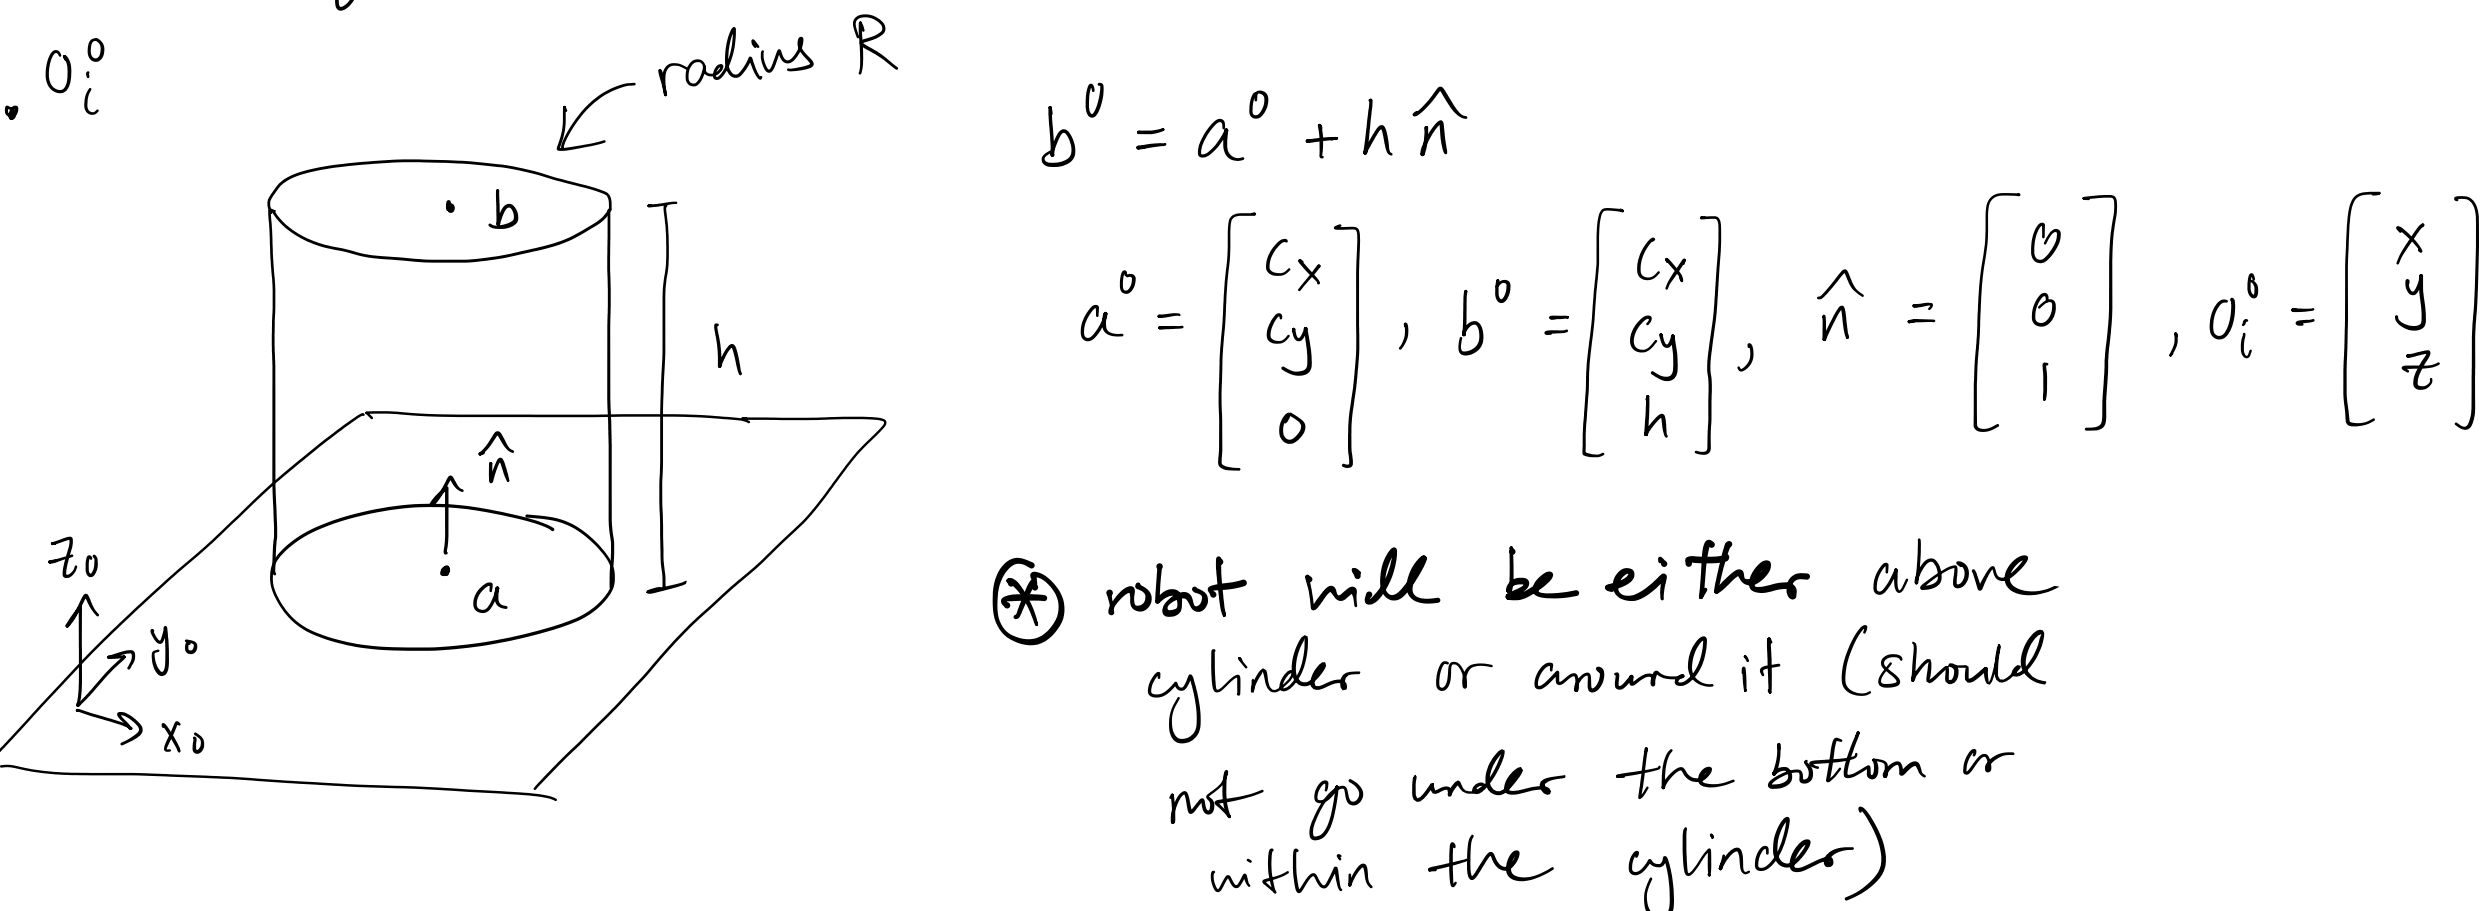 o_i^0
radius R
b
h
n̂
a
z_0
y_0
x_0
b^0 = a^0 + h n̂
a^0 = [c_x c_y 0], b^0 = [c_x c_y h], n̂ = [0 0 1], o_i^0 = [x y z]
⊛ robot will be either above
cylinder or around it (should
not go under the bottom or
within the cylinder)